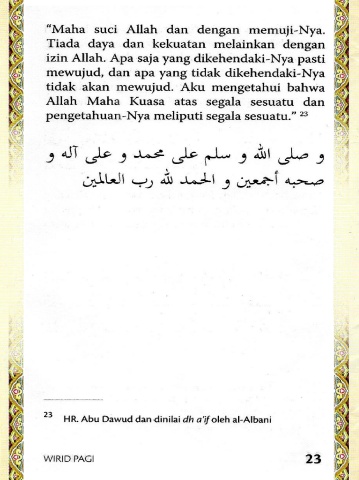 “Maha suci Allah dan dengan memuji-Nya.
Tiada daya dan kekuatan melainkan dengan
izin Allah. Apa saja yang dikehendaki-Nya pasti
mewujud, dan apa yang tidak dikehendaki-Nya
tidak akan mewujud. Aku mengetahui bahwa
Allah Maha Kuasa atas segala sesuatu dan
pengetahuan-Nya meliputi segala sesuatu.” 23
و صلى الله و سلم على محمد و على آله و
صحبه أجمعين و الحمد لله رب العالمين
23 HR. Abu Dawud dan dinilai dh a'if oleh al-Albani
WIRID PAGI 23